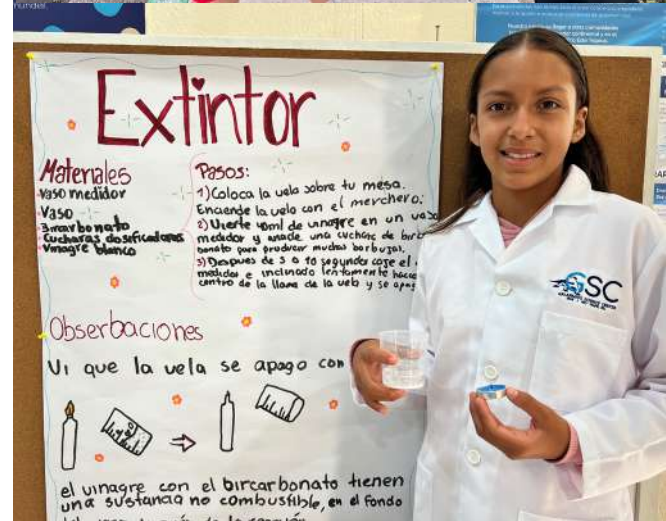 mundial.
Extintor
Materiales
-vaso medidor
·Vaso
·Bircarbonato
·Cucharas dosificadoras
·Vinagre blanco
Pasos:
1) Coloca la vela sobre tu mesa.
Enciende la vela con el merchero.
2) Vierte 40ml de vinagre en un vaso
medidor y anade una cuchara de bircar
bonato para producir muchas borbujas.
3) Despues de 5 a 10 segundos coje el
medidor e inclinado lentamente hacia
centro de la llama de la vela y se apag
Obserbaciones
Vi que la vela se apago con
el vinagre con el bircarbonato tienen
una sustancia no combustible, en el fondo
GSC